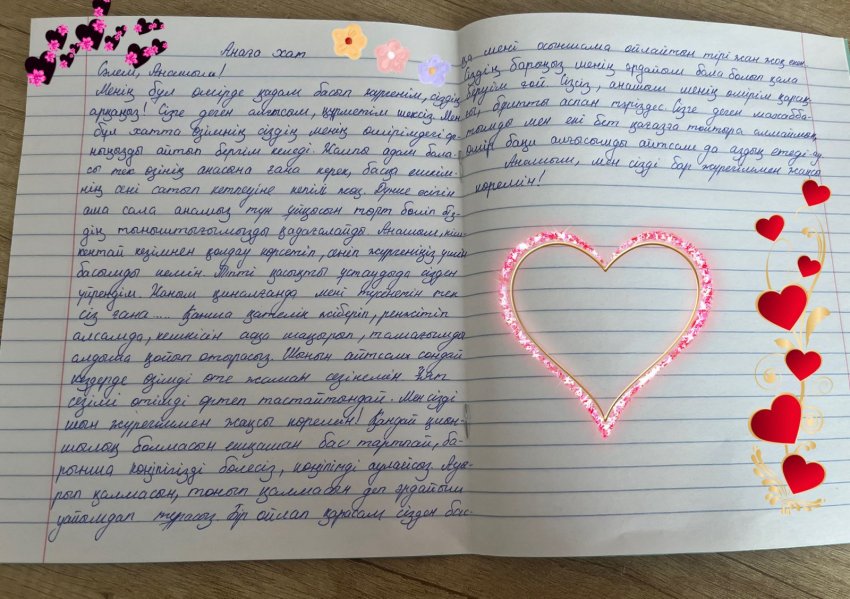 Анаға хат
Сәлем, Анашым!
Менің бұл өмірде қадам басып жүргенім, сіздің
арқаңыз! Сізге деген алғысым, құрметім шексіз. Мен
бұл хатта өзімнің сіздің менің өміріміздегі ор-
ныңызды айтып бергім келеді. Жалпы адам бала-
сы тек өзінің анасына ғана керек, басқа ешкім-
нің сені сатып кетпеуіне кепіл жоқ. Дүние есігін
аша сала анамыз түн ұйқысын төрт бөліп біз-
дің тыныштығымызды қадағалайды. Анашым, кіш-
кентай кезімнен қолдау көрсетіп, сеніп жүргеніңіз үшін
басымды иемін. Тіпті қасықты ұстауды да сізден
үйрендім. Жаным қиналғанда мені түсінетін тек
сіз ғана..... Қанша қателік жіберіп, ренжітіп
алсам да, кешкісін асқа шақырып, тамағымды
алдыма қойып отырасыз. Шынын айтсам сондай
кездерде өзімді өте жаман сезінемін. Ұят
сезімі өтімді өртеп тастайтындай. Мен сізді
шын жүрегіммен жақсы көремін! Қандай қиын-
шылық болмасын ешқашан бас тартпай, ба-
рынша көңілігізді бөлесіз, көңілімді аулайсыз. Ауы-
рып қалмасын, тоңып қалмасын деп әрдайым
уайымдап тұрасыз. Бір ойлап қарасам сізден бас-
қа мені осыншама ойлайтын тірі жан жоқ екен.
Сіздің барыңыз менің әрдайым бала болып қала
беруім ғой. Сізсіз, анашым менің өмірім қараң-
ғы, бұлтты аспан тәріздес. Сізге деген махабба-
тымды мен екі бет қағазға толтыра алмаймын,
өмір бақи алғысымды айтсам да аздық етеді-ау.
Анашым, мен сізді бар жүрегіммен жақсы
көремін!